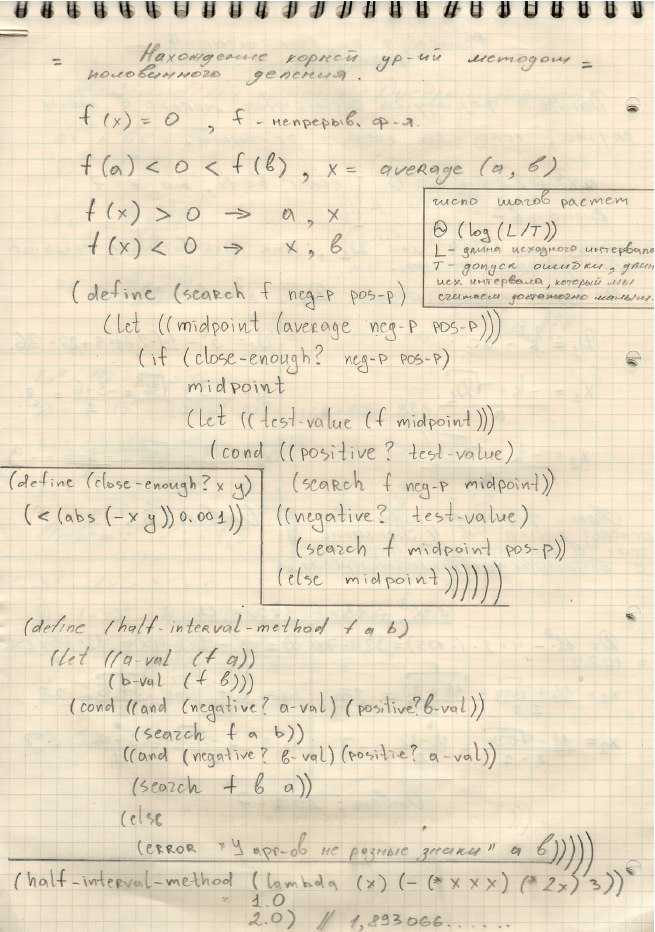 = Нахождение корней ур-ий методом =
половинного деления.
f(x) = 0 , f - непрерыв. ф-я.
f(a) < 0 < f(b) , x = average (a, b)
f(x) > 0 → a, x
f(x) < 0 → x, b
число шагов растет
Θ (log(L/T))
L - длина исходного интервала
T - допуск ошибки, длин
исх. интервала, который мы
считаем достаточно малым.
(define (search f neg-p pos-p)
(let ((midpoint (average neg-p pos-p)))
(if (close-enough? neg-p pos-p)
midpoint
(let ((test-value (f midpoint)))
(cond ((positive? test-value)
(search f neg-p midpoint))
((negative? test-value)
(search f midpoint pos-p))
(else midpoint))))))
(define (close-enough? x y)
(< (abs (- x y)) 0.001))
(define (half-interval-method f a b)
(let ((a-val (f a))
(b-val (f b)))
(cond ((and (negative? a-val) (positive? b-val))
(search f a b))
((and (negative? b-val) (positie? a-val))
(search f b a))
(else
(error "У арг-ов не разные знаки" a b)))))
(half-interval-method (lambda (x) (- (* x x x) (* 2x) 3))
1.0
2.0) // 1,893066......